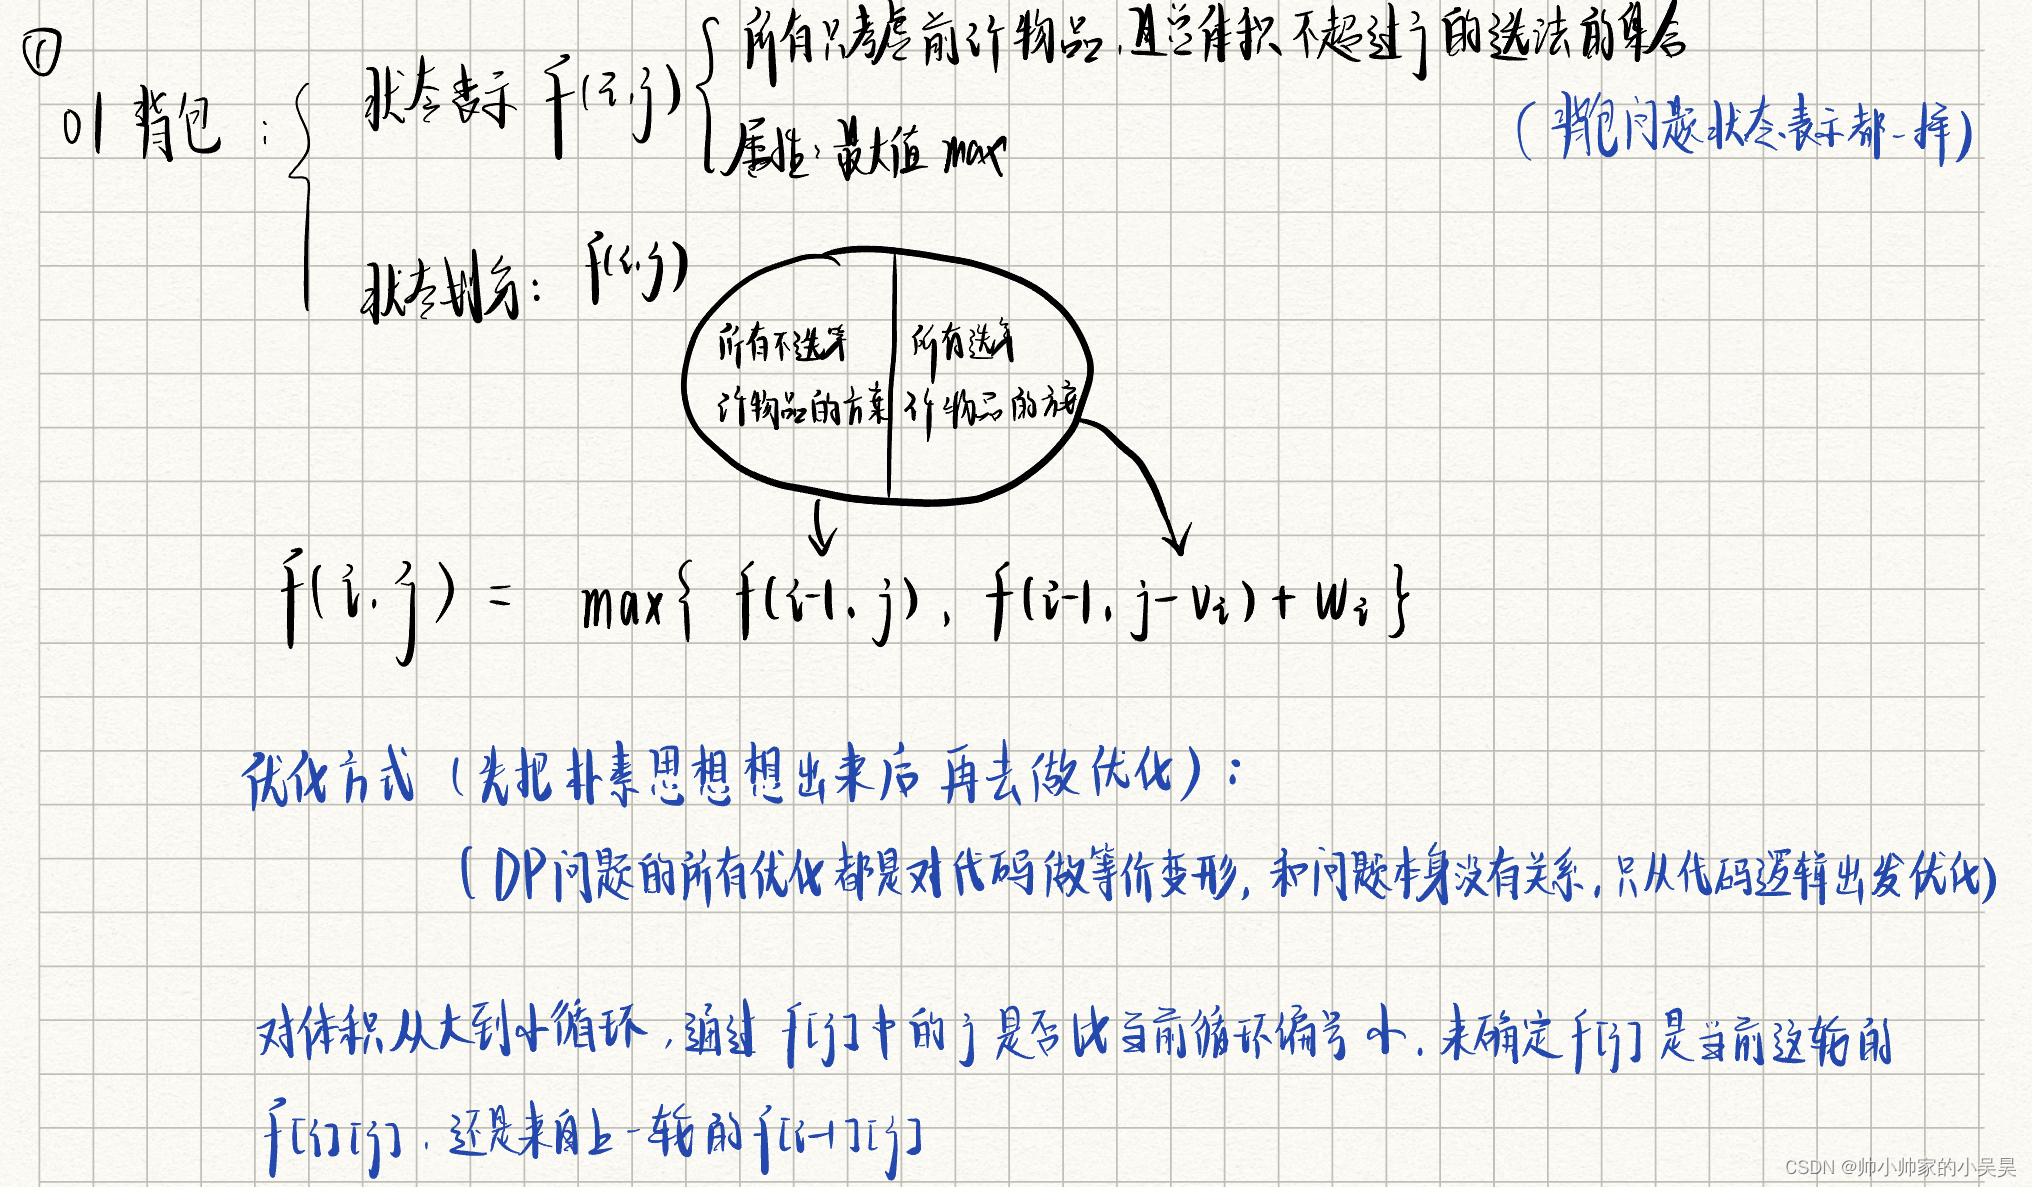 ①
01背包：
状态表示 f(i,j)
所有只考虑前i个物品，且总体积不超过j的选法的集合
属性：最大值 max
(背包问题状态表示都一样)
状态划分： f(i,j)
所有不选第
i个物品的方案
所有选第
i个物品的方案
f(i,j) = max{ f(i-1,j), f(i-1,j-vᵢ)+wᵢ}
优化方式（先把朴素思想想出来后再去做优化）：
（DP问题的所有优化都是对代码做等价变形，和问题本身没有关系，只从代码逻辑出发优化）
对体积从大到小循环，通过f[j]中的j是否比当前循环编号小，来确定f[j]是当前这轮的
f[i][j]，还是来自上一轮的f[i-1][j]
CSDN @帅小帅家的小吴昊